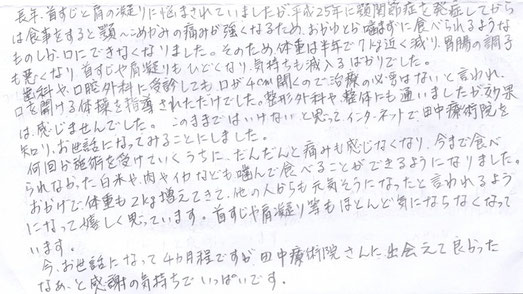 長年、首すじと肩の凝りに悩まされていましたが、平成25年に顎関節症を発症してから
は食事をすると顎〜こめかみの痛みが強くなるため、おかゆとか噛まずに食べられるような
ものしか口にできなくなりました。そのため、体重は半年で7kg近く減り、胃腸の調子
も悪くなり首すじや肩凝りもひどくなり、気持ちも滅入るばかりでした。
歯科や口腔外科に受診しても口が4cm開くので治療の必要はないと言われ、
口を開ける体操を指導されただけでした。整形外科や、整体にも通いましたが効果
は感じませんでした。このままではいけないと思ってインターネットで田中療術院を
知り、お世話になってみることにしました。
何回か施術を受けていくうちに、だんだんと痛みも感じなくなり、今まで食べ
られなかった白米や、肉やイカなども噛んで食べることができるようになりました。
おかげで体重も2kg増えてきて、他の人からも元気そうになったと言われるよう
になって嬉しく思っています。首すじや肩凝り等もほとんど気にならなくなって
います。
今、お世話になって4カ月程ですが田中療術院さんに出会えて良かった
なぁ、と感謝の気持ちでいっぱいです。